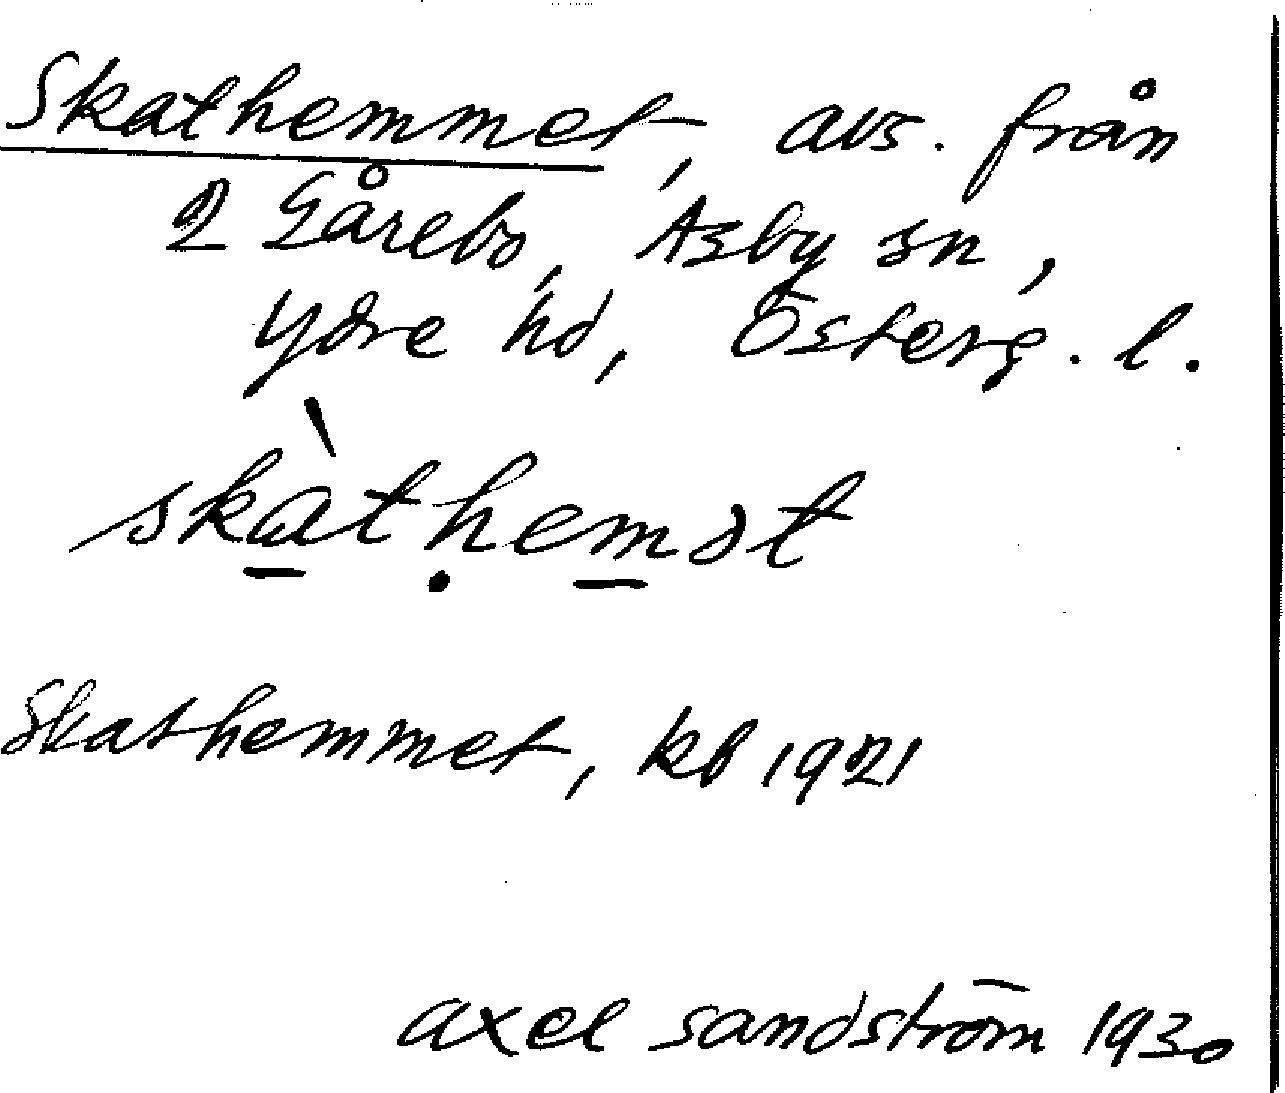 Skathemmet, avs. från
2 Gårebo, Asby sn,
Ydre hd, Österg. l.
skàthemət
Skathemmet, kb 1921
axel sandström 1930